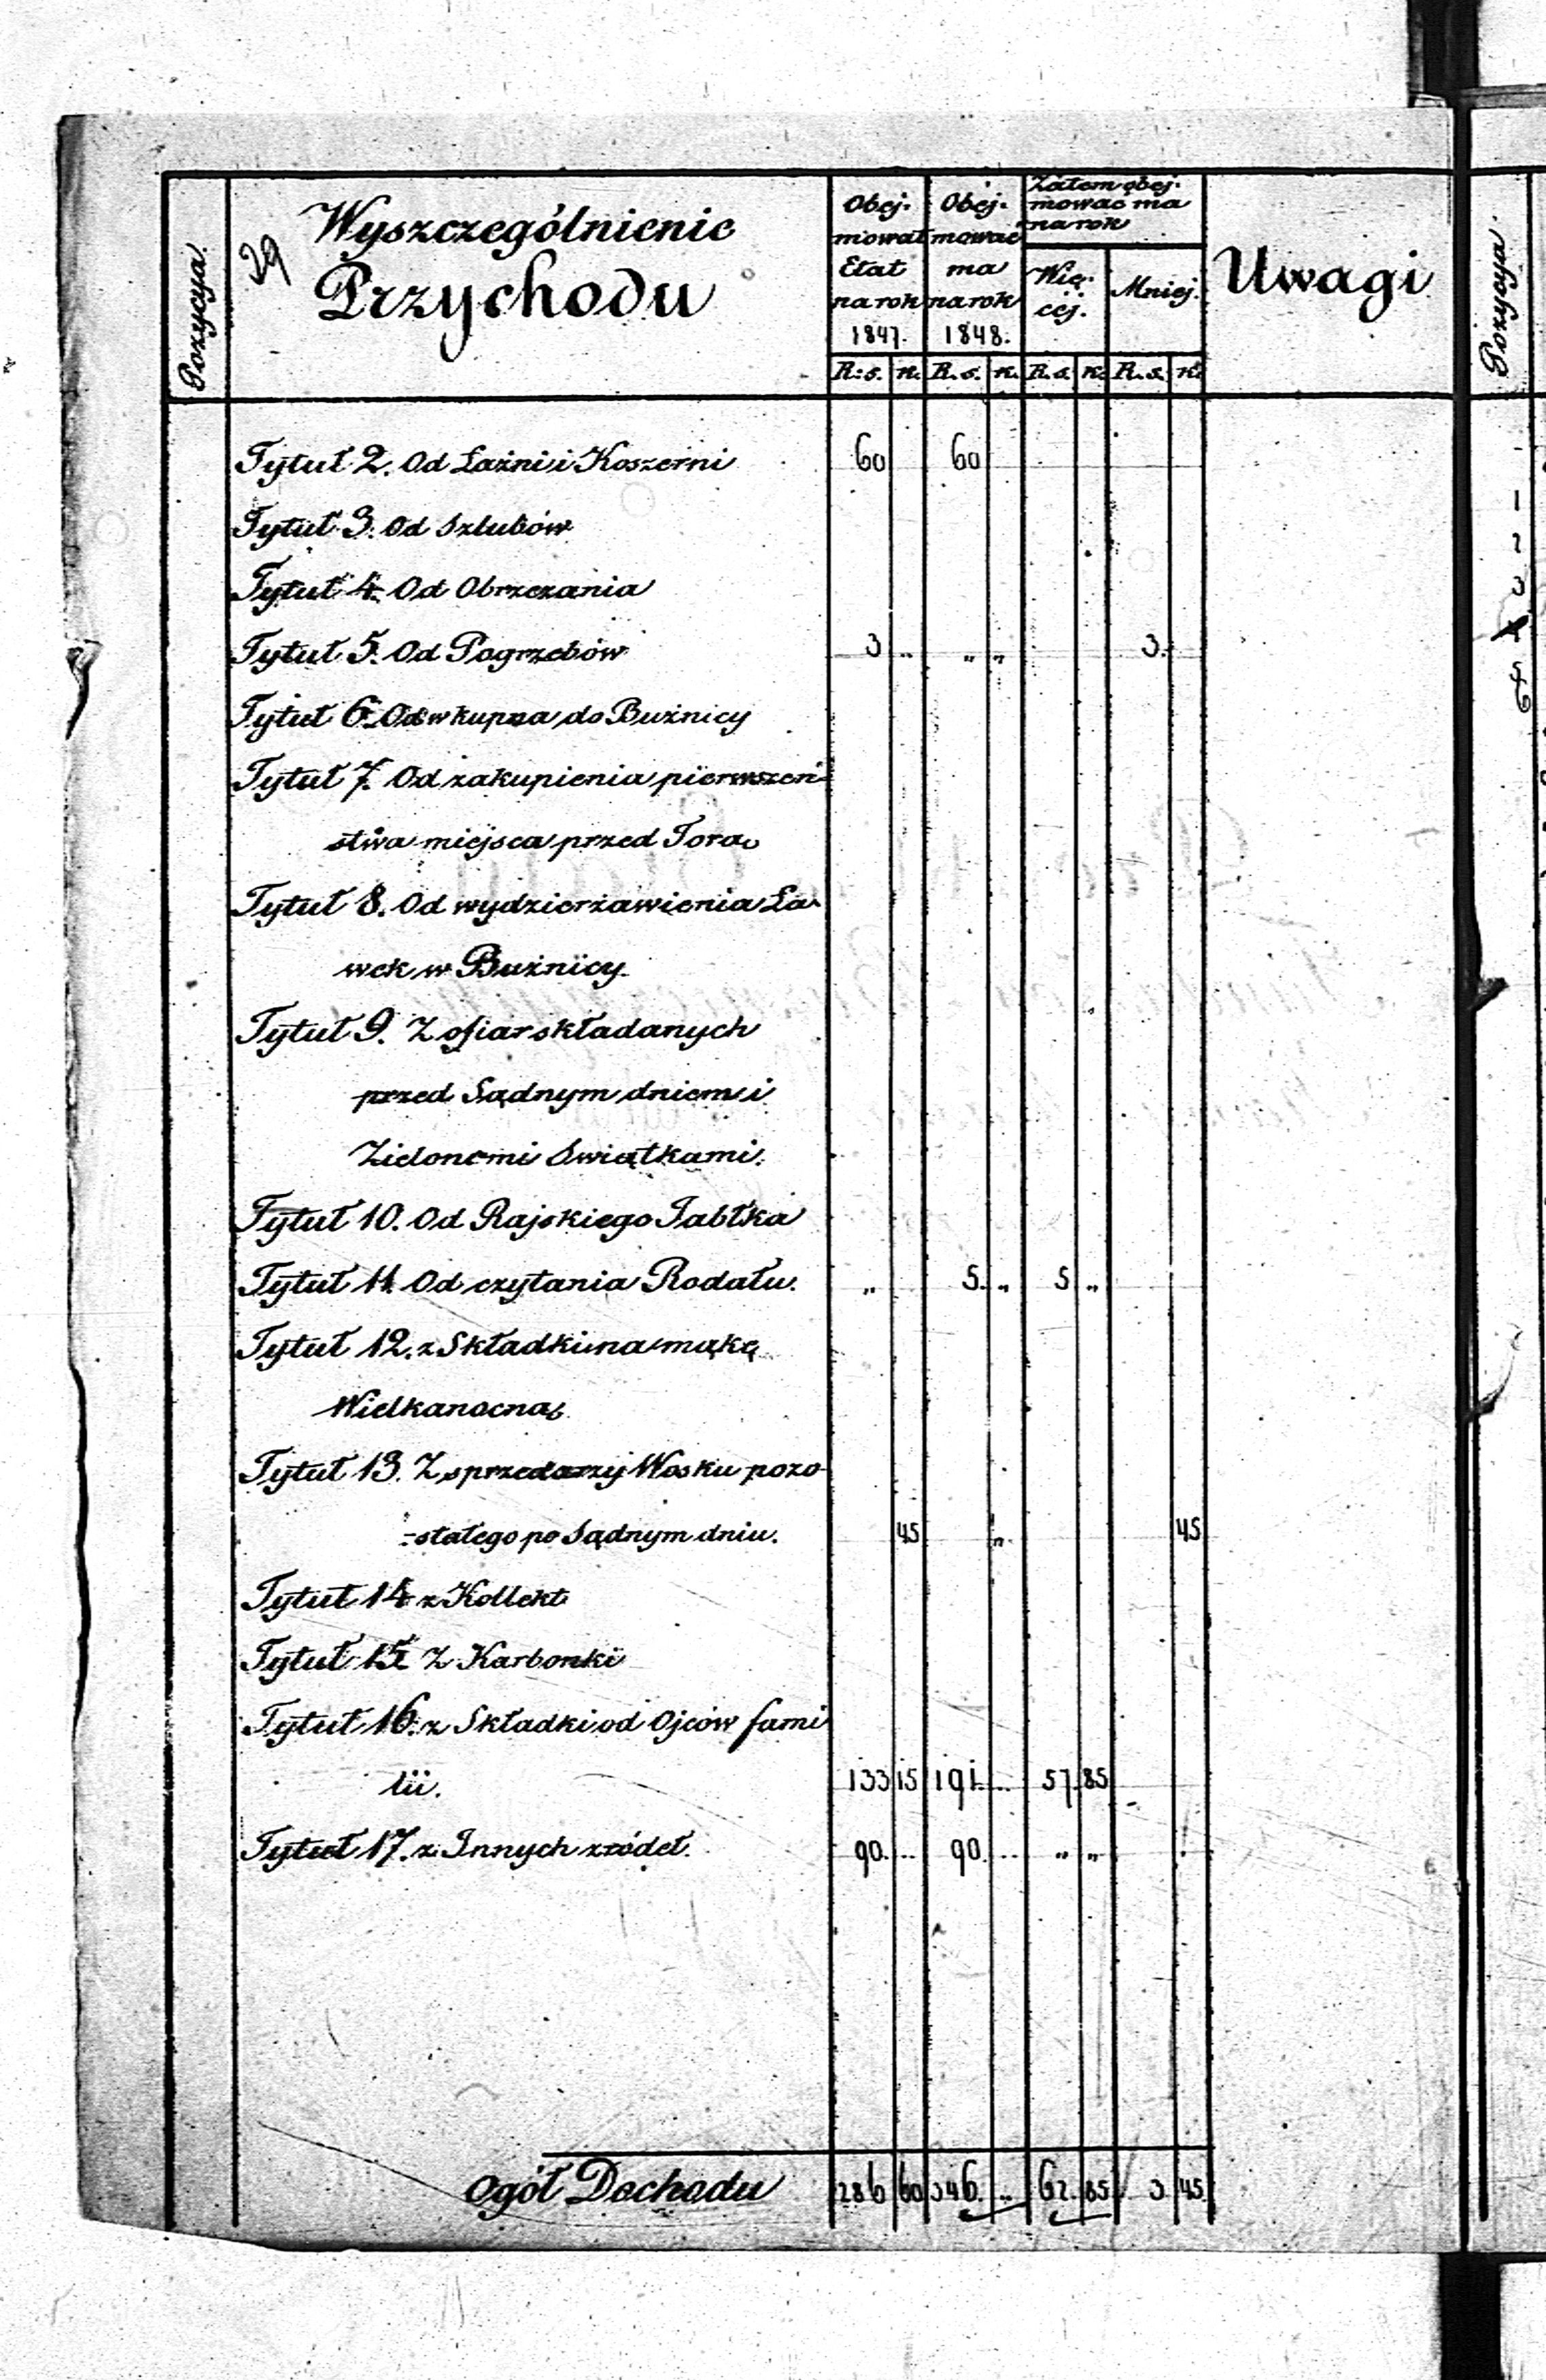 Pozycya.
29
Wyszczególnienie
Przychodu
Obej-
mował
Etat
na rok
1847.
Obej-
mować
ma
na rok
1848.
Zatem obej-
mować ma
na rok
Wię-
cej.
Mniej.
Uwagi
R: s. k. R. s. k. R. s. k. R. s. k.
Tytuł 2. Od Łaźni i Koszerni 60 60
Tytuł 3. Od Szlubów
Tytuł 4. Od Obrzezania
Tytuł 5. Od Pogrzebów 3 „ „ „ 3.
Tytuł 6. Od wkupna do Bużnicy
Tytuł 7. Od zakupienia pierwszeń-
stwa miejsca przed Torą
Tytuł 8. Od wydzierżawienia Ła-
wek w Bużnicy.
Tytuł 9. Z ofiar składanych
przed Sądnym dniem i
Zielonemi Swiątkami.
Tytuł 10. Od Rajskiego Jabłka
Tytuł 11. Od czytania Rodału. „ 5. „ 5 „
Tytuł 12. z Składki na mąkę
Wielkanocną
Tytuł 13. Z sprzedarzy Wosku pozo-
-stałego po Sądnym dniu. 45 „ 45
Tytuł 14 z Kollekt
Tytuł 15. Z Karbonki
Tytuł 16. z Składki od Ojców fami
lii. 133 15 191. „ 57. 85
Tytuł 17. z Innych zródeł. 90. „ 90. „ „ „
Ogół Dochodu 286 60 346. „ 62. 85 3 45
Pozycya.
1
2
3
5
6